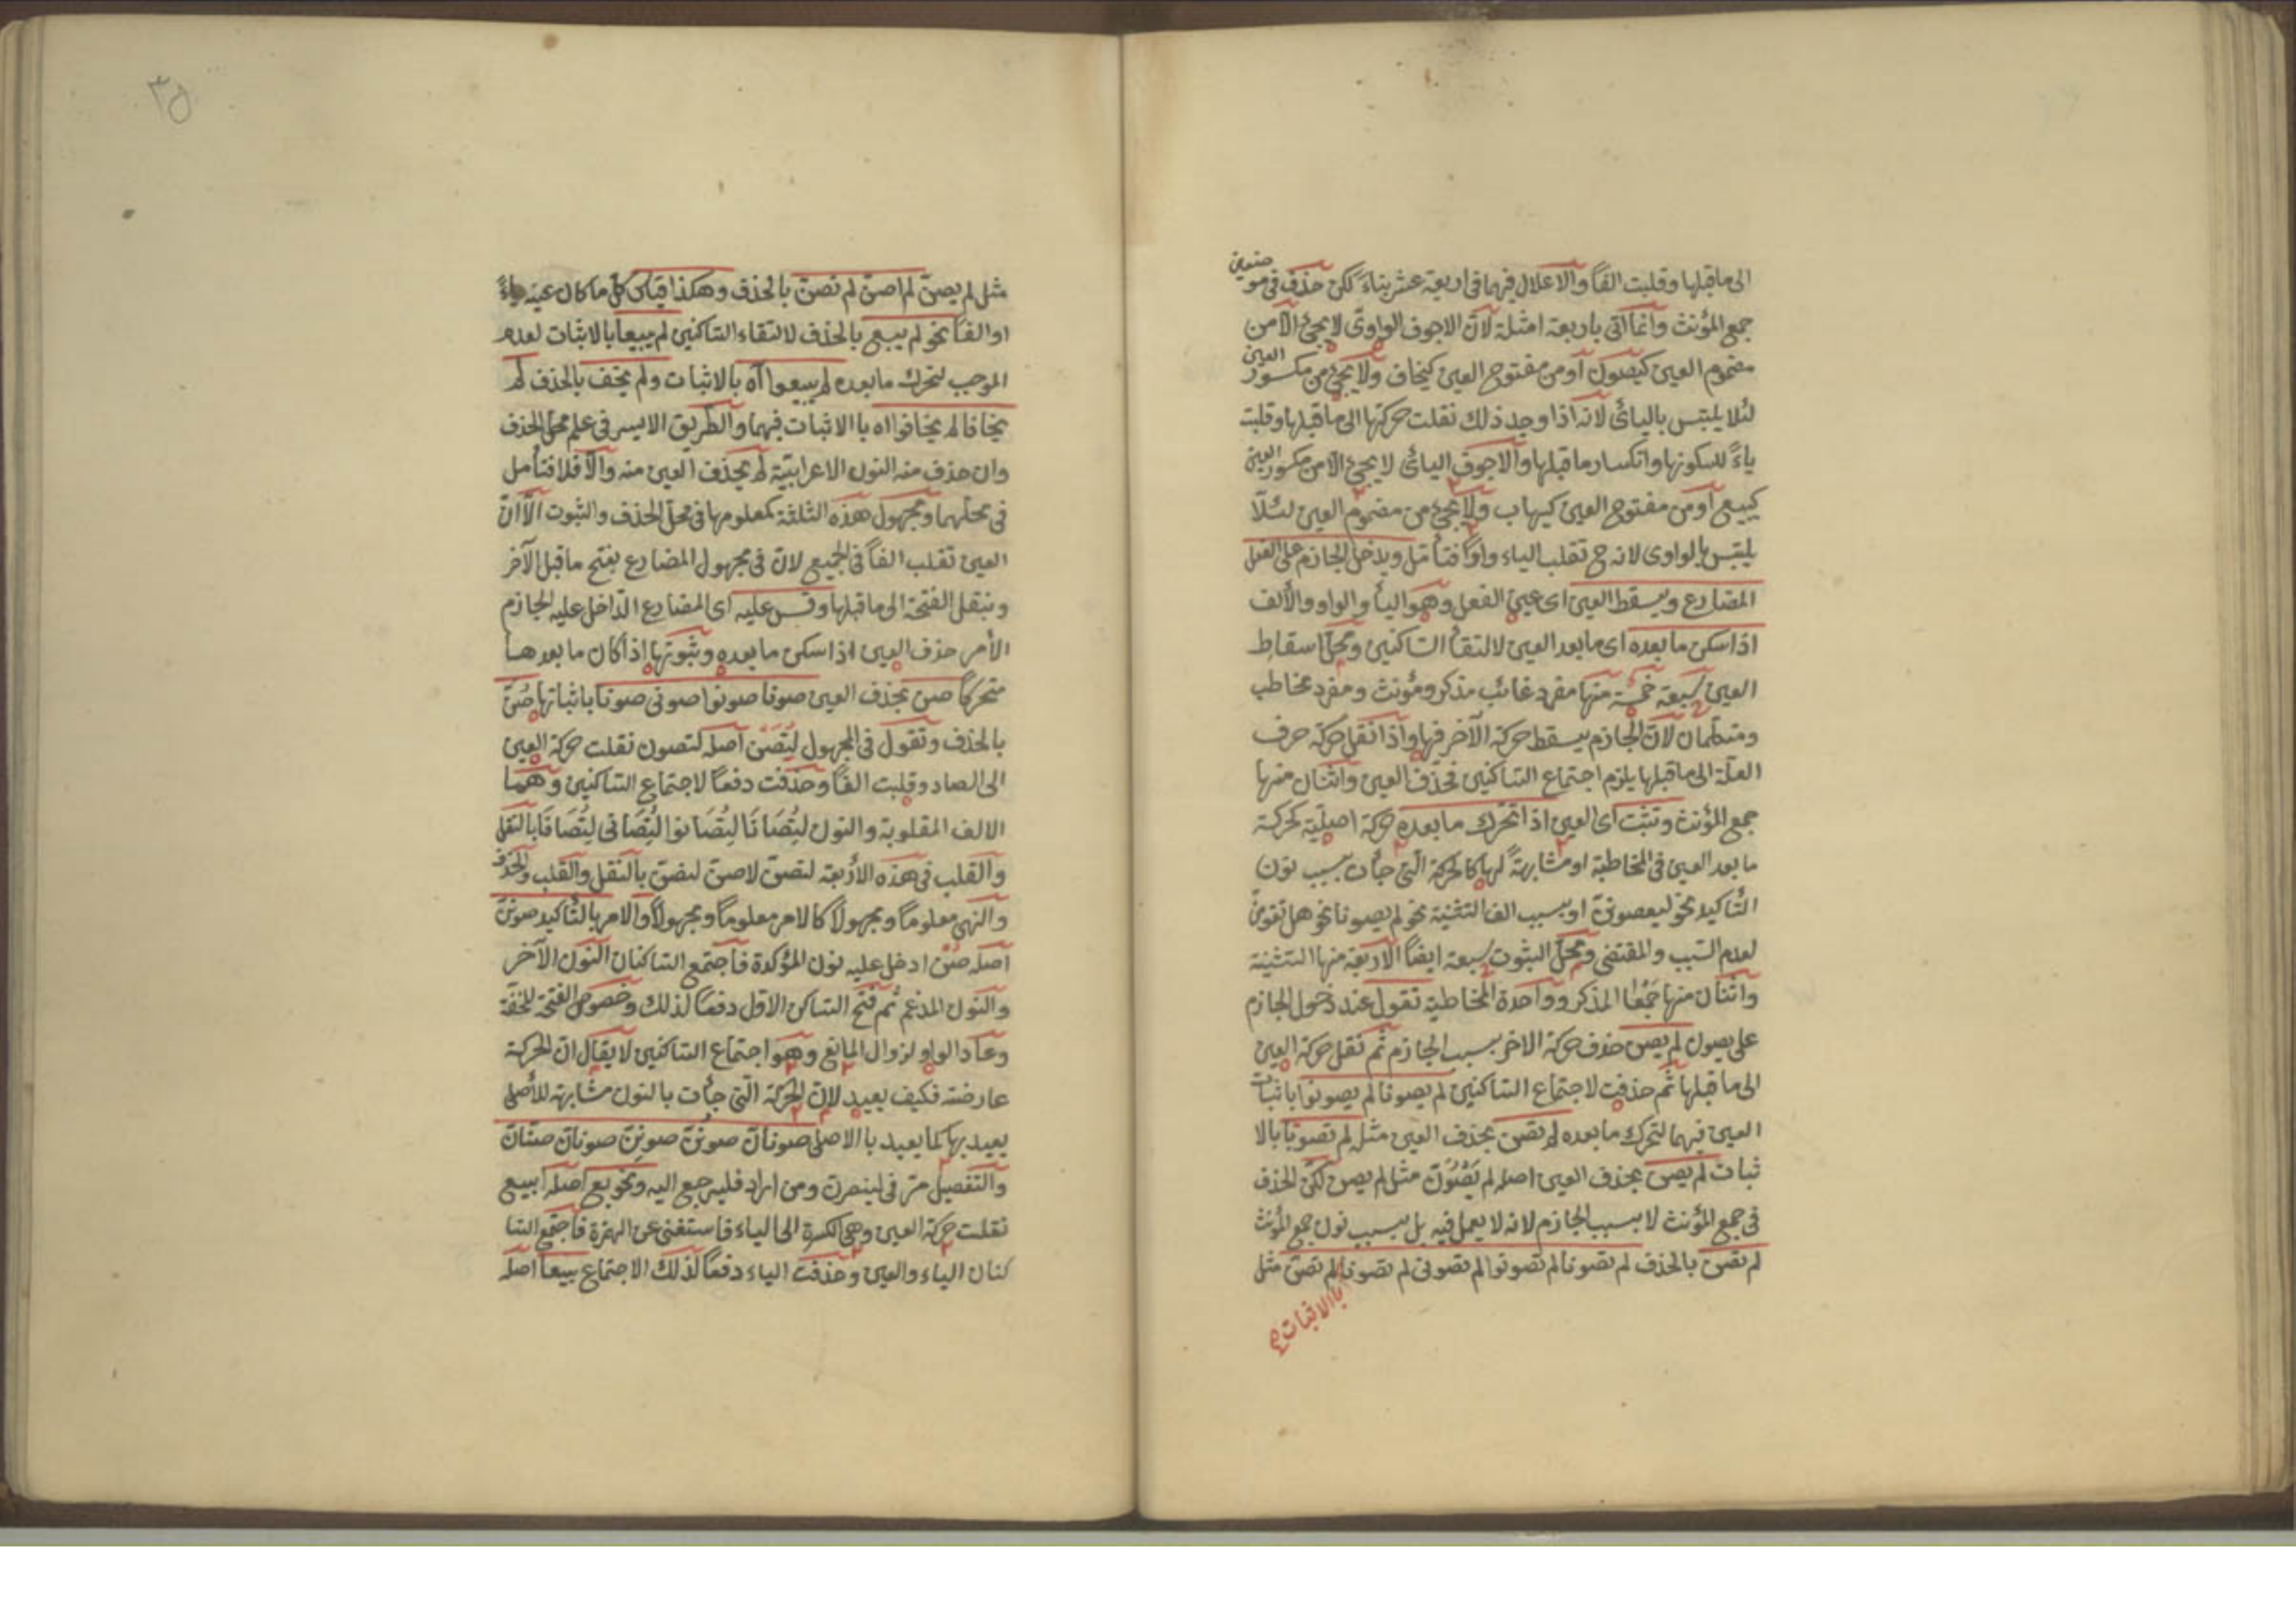 الى ماقبلها وقلبت الفاً والاعلال فيهما فى اربعة عشر بناءً لكن حذف فى موضعين
جمع المؤنث وانما اتى باربعة امثلة لان الاجوف الواوى لا يجئ الا من
مضموم العين كيصون او من مفتوح العين كيخاف ولا يجئ من مكسور العين
لئلا يلتبس باليائى لانه اذا وجد ذلك نقلت حركتها الى ماقبلها وقلبت
ياءً لسكونها وانكسار ماقبلها والاجوف اليائى لا يجئ الا من مكسور العين
كيبيع او من مفتوح العين كيهاب ولا يجئ من مضموم العين لئلا
يلتبس بالواوى لانه ح تقلب الياء واواً فتأمل ويدخل الجازم على الفعل
المضارع ويسقط العين اى عين الفعل وهو اليأ والواو والألف
اذا سكن مابعده اى مابعد العين لالتقأ الساكنين ومحل اسقاط
العين سبعة خمسة منها مفرد غائب مذكر ومؤنث ومفرد مخاطب
ومتكلمان لان الجازم يسقط حركة الآخر فيها واذا نقل حركة حرف
العلة الى ماقبلها يلزم اجتماع الساكنين فحذف العين واثنان منها
جمع المؤنث وتثبت اى العين اذا تحرك مابعده حركة اصلية كحركة
مابعد العين فى المخاطبة او مشابهةً لها كالحركة التى جأت بسبب نون
التأكيد نحو ليصونن او بسبب الف التثنية نحو لم يصونا نحو هل تقومن
لعدم السبب والمقتضى ومحل الثبوت سبعة ايضاً الاربعة منها التثنية
واثنان منها جَمْعُا المذكر وواحدة المخاطبة تقول عند دخول الجازم
على يصون لم يصن حذف حركة الاخر بسبب الجازم ثم نقل حركة العين
الى ماقبلها ثم حذفت لاجتماع الساكنين لم يصونا لم يصونوا باثبات
العين فيهما لتحرك مابعده لم تصن بحذف العين مثل لم تصونا بالا
ثبات لم يصن بحذف العين اصله لم يَصْوُنَّ مثل لم يصن لكن الحذف
فى جمع المؤنث لا بسبب الجازم لانه لا يعمل فيه بل بسبب نون جمع المؤنث
لم تصن بالحذف لم تصونا لم تصونوا لم تصونى لم تصونا لم تصن مثل
بالاثبات
٣٥
مثل لم يصن لم اصن لم نصن بالحذف وهكذا قياس كل ماكان عينه ياءً
او الفاً نحو لم يبع بالحذف لالتقاء الساكنين لم يبيعا بالاثبات لعدم
الموجب لتحرك مابعده لم يبيعوا آه بالاثبات ولم يخف بالحذف لم
يخافا لم يخافوا اه باالاثبات فيهما والطريق الايسر فى علم محل الحذف
وان حذف منه النون الاعرابية لم يحذف العين منه والا فلا فتأمل
فى محلهما ومجهول هذه الثلثة كمعلومها فى محل الحذف والثبوت الا ان
العين تقلب الفاً فى الجميع لان فى مجهول المضارع يفتح ماقبل الآخر
وينقل الفتحة الى ماقبلها وقس عليه اى المضارع الداخل عليه الجازم
الأمر حذف العين اذا سكن مابعده وثبوتها اذا كان مابعدها
متحركاً صن بحذف العين صونا صونوا صونى صونا باثباتها صُنَّ
بالحذف وتقول فى المجهول لِتُصَنْ اصله لتصون نقلت حركة العين
الى الصاد وقلبت الفاً وحذفت دفعاً لاجتماع الساكنين وهما
الالف المقلوبة والنون لِتُصَانَا لِتُصَانوا لِتُصَانى لِتُصَانَا بالنقل
والقلب فى هذه الأربعة لتصن لاصن لنصن بالنقل والقلب والحذف
والنهى معلوماً ومجهولاً كالامر معلوماً ومجهولاً والامر بالتأكيد صونن
اصله صُنْ ادخل عليه نون المؤكدة فاجتمع الساكنان النون الآخر
والنون المدغم ثم فتح الساكن الاول دفعاً لذلك وخصوص الفتحة للخفة
وعاد الواو لزوال المانع وهو اجتماع الساكنين لا يقال ان الحركة
عارضته فكيف يعيد لان الحركة التى جأت بالنون مشابهة للأصلى
يعيد بها كما يعيد باالاصلى صونان صونُنّ صونِنّ صونان صنان
والتفصيل مر فى لينصرن ومن اراد فليرجع اليه ونحو بع اصله ابيع
نقلت حركة العين وهى الكسرة الى الياء فاستغنى عن الهمزة فاجتمع السا
كنان الياء والعين وحذفت الياء دفعاً لذلك الاجتماع بيعا اصله